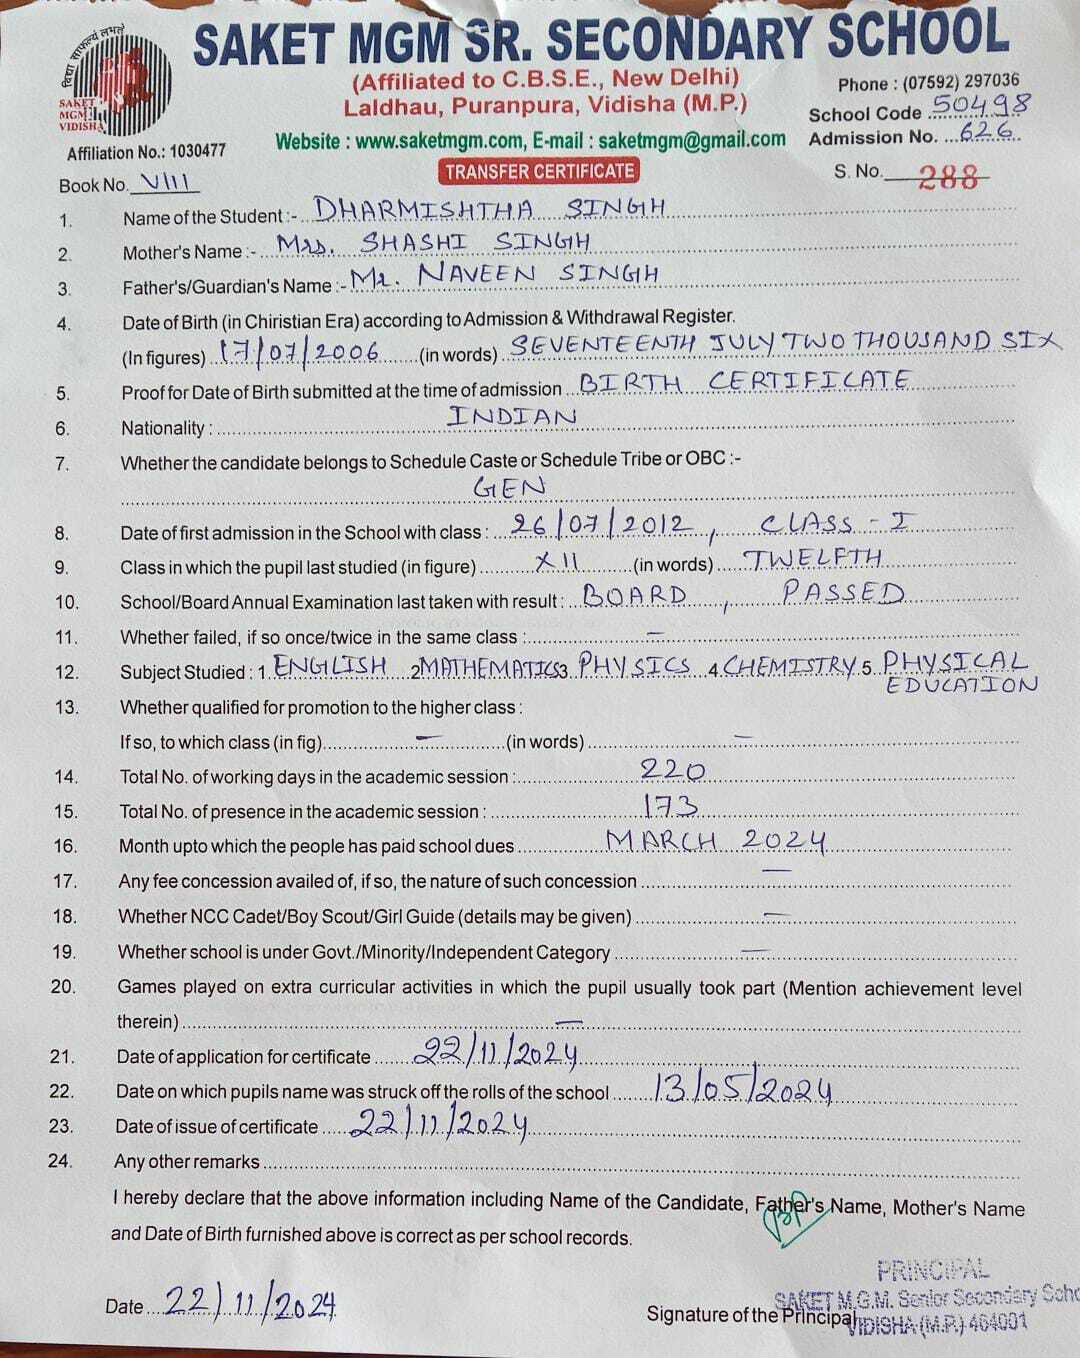 विद्या साफल्यं लभते
SAKET
MGM
VIDISHA
SAKET MGM SR. SECONDARY SCHOOL
(Affiliated to C.B.S.E., New Delhi)
Laldhau, Puranpura, Vidisha (M.P.)
Phone : (07592) 297036
School Code 50498
Website : www.saketmgm.com, E-mail : saketmgm@gmail.com
Admission No. 626
Affiliation No.: 1030477
TRANSFER CERTIFICATE
Book No. VIII
S. No. 288
1. Name of the Student :- DHARMISHTHA SINGH
2. Mother's Name :- Mrs. SHASHI SINGH
3. Father's/Guardian's Name :- Mr. NAVEEN SINGH
4. Date of Birth (in Chiristian Era) according to Admission & Withdrawal Register.
(In figures) 17/07/2006 (in words) SEVENTEENTH JULY TWO THOUSAND SIX
5. Proof for Date of Birth submitted at the time of admission BIRTH CERTIFICATE
6. Nationality : INDIAN
7. Whether the candidate belongs to Schedule Caste or Schedule Tribe or OBC :-
GEN
8. Date of first admission in the School with class : 26/07/2012, CLASS - I
9. Class in which the pupil last studied (in figure) XII (in words) TWELFTH
10. School/Board Annual Examination last taken with result : BOARD, PASSED
11. Whether failed, if so once/twice in the same class : —
12. Subject Studied : 1 ENGLISH 2 MATHEMATICS 3. PHYSICS 4. CHEMISTRY 5. PHYSICAL
EDUCATION
13. Whether qualified for promotion to the higher class :
If so, to which class (in fig) — (in words) —
14. Total No. of working days in the academic session : 220
15. Total No. of presence in the academic session : 173
16. Month upto which the people has paid school dues MARCH 2024
17. Any fee concession availed of, if so, the nature of such concession —
18. Whether NCC Cadet/Boy Scout/Girl Guide (details may be given) —
19. Whether school is under Govt./Minority/Independent Category —
20. Games played on extra curricular activities in which the pupil usually took part (Mention achievement level
therein) —
21. Date of application for certificate 22/11/2024
22. Date on which pupils name was struck off the rolls of the school 13/05/2024
23. Date of issue of certificate 22/11/2024
24. Any other remarks
I hereby declare that the above information including Name of the Candidate, Father's Name, Mother's Name
and Date of Birth furnished above is correct as per school records.
PRINCIPAL
SAKET M.G.M. Senior Secondary Scho
VIDISHA (M.P.) 464001
Date 22/11/2024
Signature of the Principal